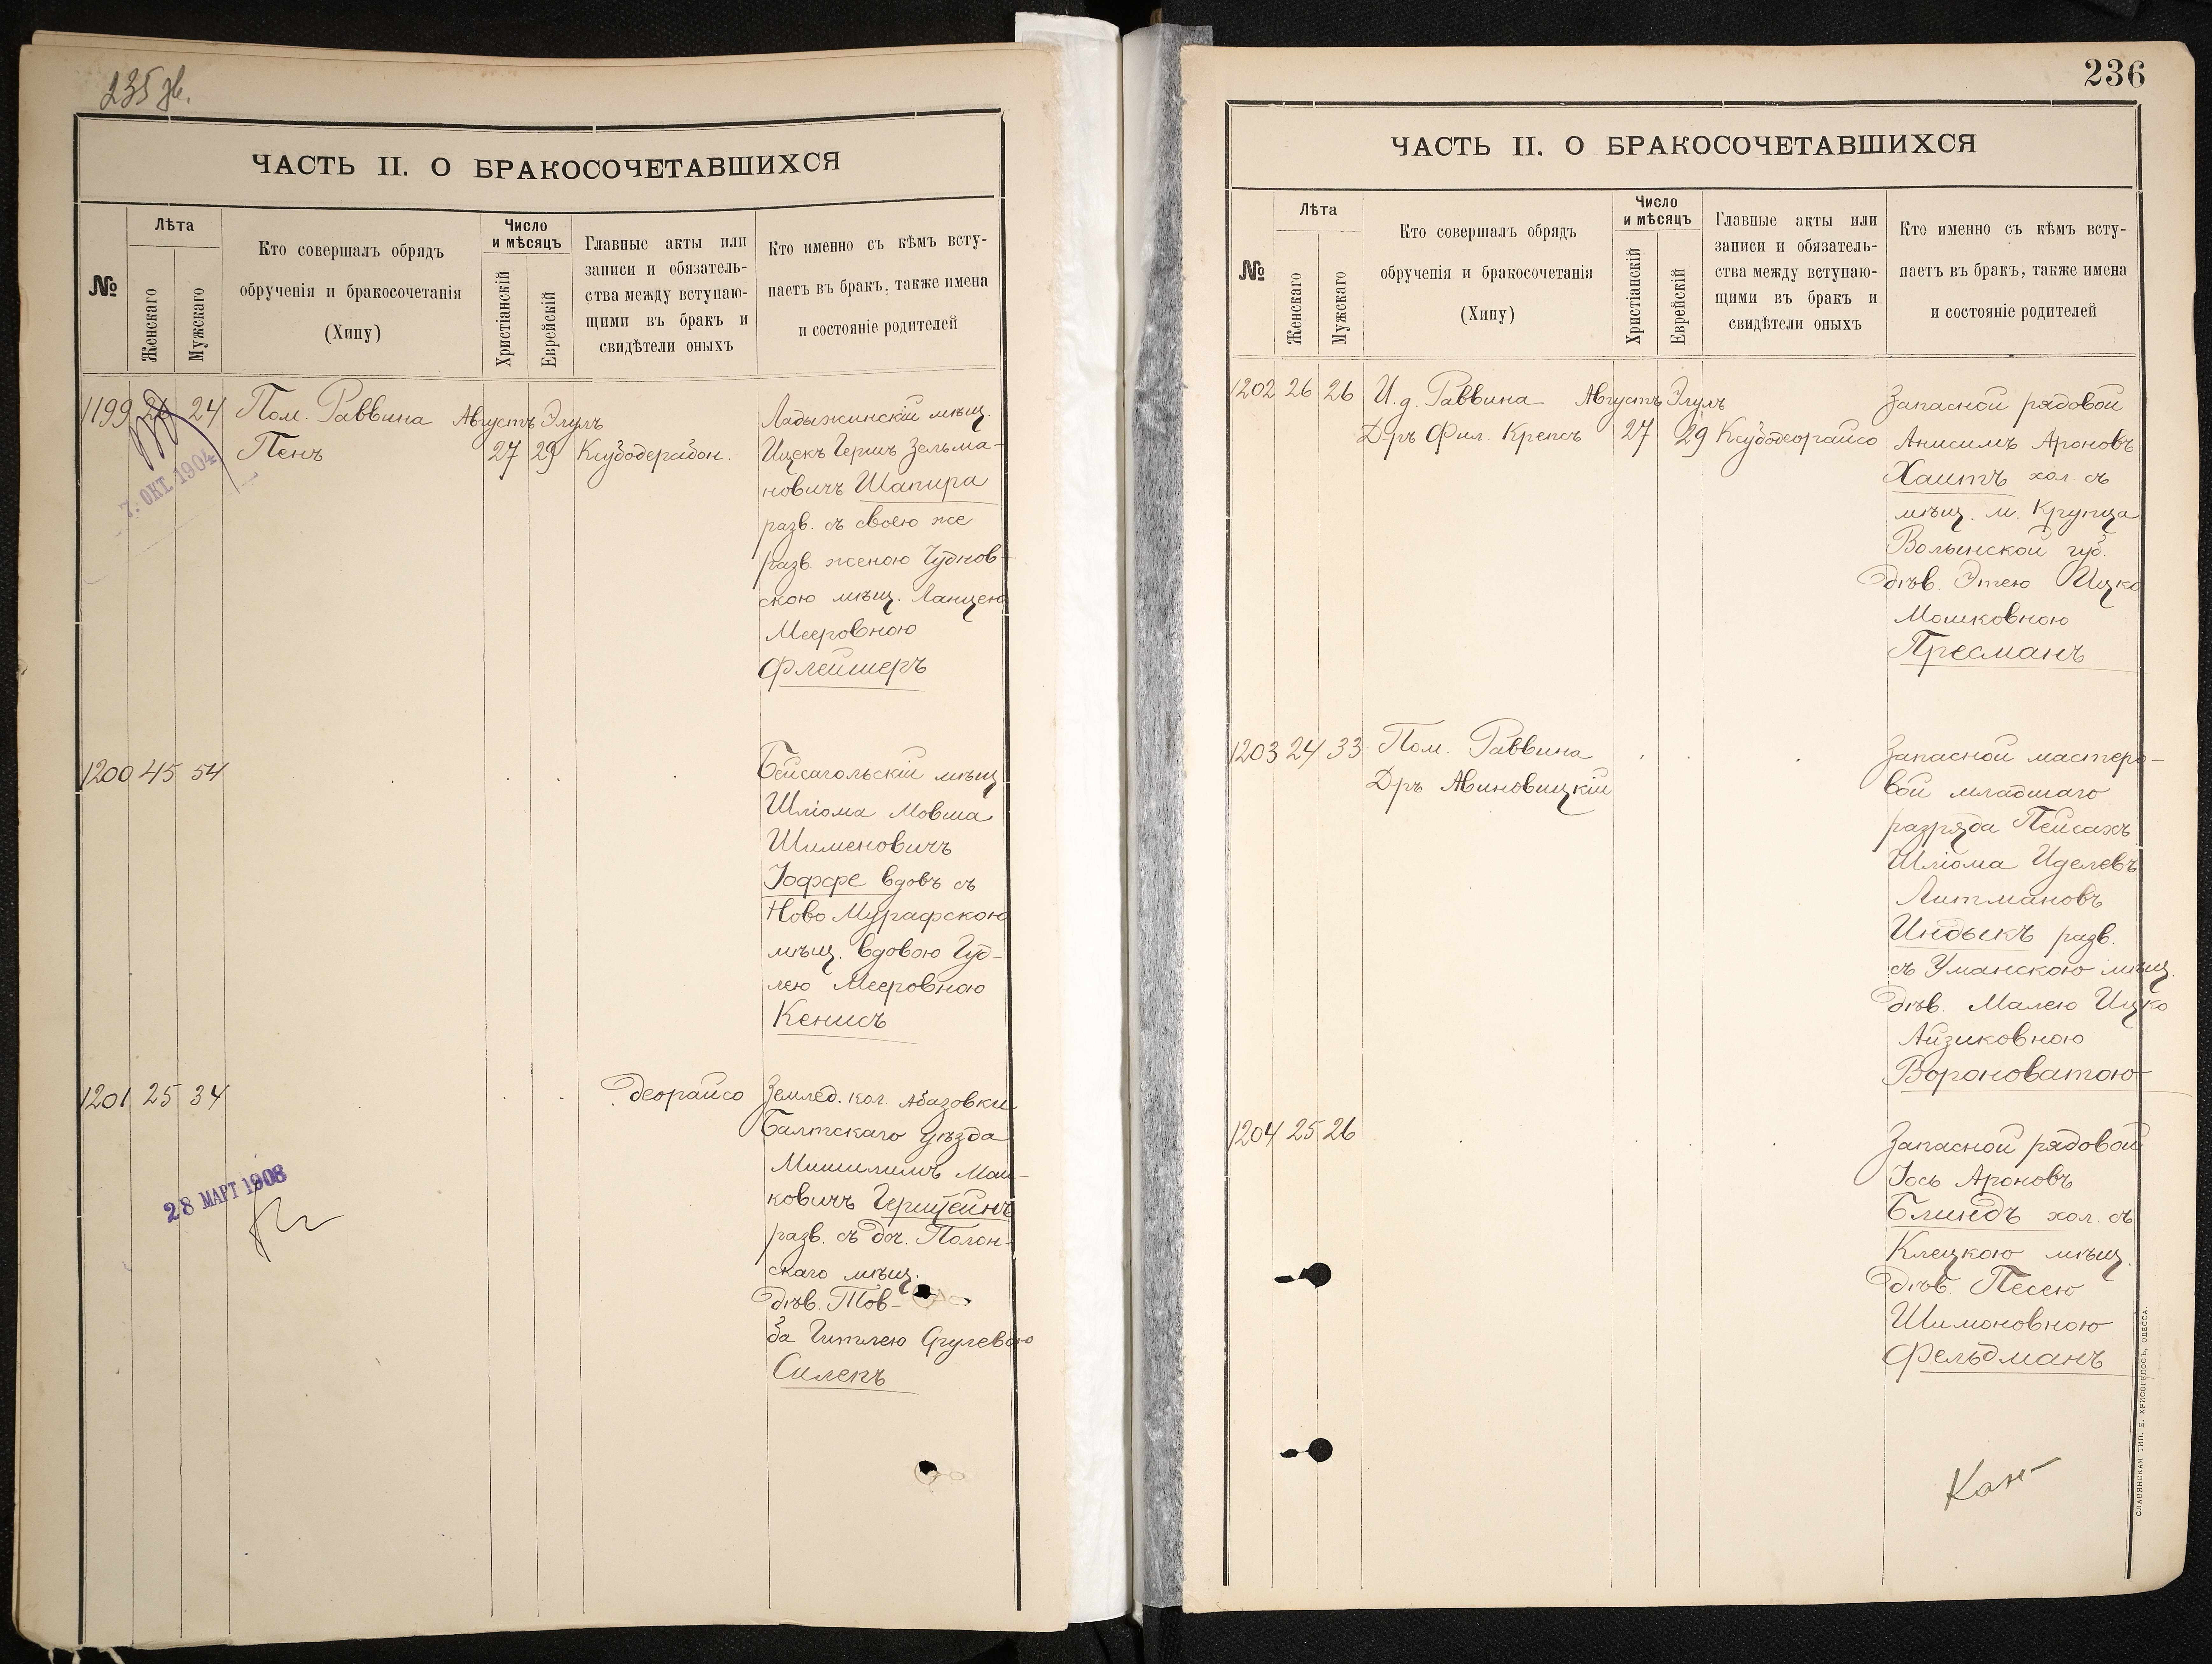 235 зв.
ЧАСТЬ II. О БРАКОСОЧЕТАВШИХСЯ
№
Лѣта
Женскаго
Мужскаго
Кто совершалъ обрядъ
обрученія и бракосочетанія
(Хипу)
Число
и мѣсяцъ
Христіанскій
Еврейскій
Главные акты или
записи и обязатель-
ства между вступаю-
щими въ бракъ и
свидѣтели оныхъ
Кто именно съ кѣмъ всту-
паетъ въ бракъ, также имена
и состояніе родителей
1199 24 Пом. Раввина Августъ Элулъ Ладыжинскій мѣщ.
Пенъ 27 29 Ицекъ Гершъ Зельма-
новичъ Шапира
разв. съ своею же
разв. женою Чуднов-
скою мѣщ.
Мееровною
Флейшеръ
7. ОКТ. 1904
1200 45 54 Бейсагольскій мѣщ.
Шліома Мовша
Шименовичъ
Іоффе вдовъ съ
Ново Мурафскою
мѣщ. вдовою Гуд-
лею Мееровною
Кенисъ
1201 25 34 деорайсо Землед. кол. Абазовки
Балтскаго уѣзда
Мош-
ковичъ Герштейнъ
разв. съ доч. Полон-
скаго мѣщ.
дѣв. Тов-
ба Гитлею Срулевою
Силепъ
28 МАРТ 1908
236
ЧАСТЬ II. О БРАКОСОЧЕТАВШИХСЯ
№
Лѣта
Женскаго
Мужскаго
Кто совершалъ обрядъ
обрученія и бракосочетанія
(Хипу)
Число
и мѣсяцъ
Христіанскій
Еврейскій
Главные акты или
записи и обязатель-
ства между вступаю-
щими въ бракъ и
свидѣтели оныхъ
Кто именно съ кѣмъ всту-
паетъ въ бракъ, также имена
и состояніе родителей
1202 26 26 И. д. Раввина Августъ Элулъ Запасной рядовой
Д-ръ Фил. Крепсъ 27 29 Ксубодеорайсо Анисимъ Ароновъ
Хаитъ хол. съ
мѣщ. м. Крупца
Волынской губ.
дѣв. Этею Ицко
Мошковною
Пресманъ
1203 24 33 Пом. Раввина Запасной мастеро-
Д-ръ Авиновицкій вой младшаго
разряда Пейсахъ
Шліома Иделевъ
Литмановъ
Индыкъ разв.
съ Уманскою мѣщ.
дѣв. Малею Ицко
Айзиковною
Вороноватою
1204 25 26 Запасной рядовой
Іось Ароновъ
Блиндъ хол. съ
Клецкою мѣщ.
дѣв. Песею
Шимоновною
Фельдманъ
СЛАВЯНСКАЯ ТИП. Е. ХРИСОГЕЛОСЪ, ОДЕССА.